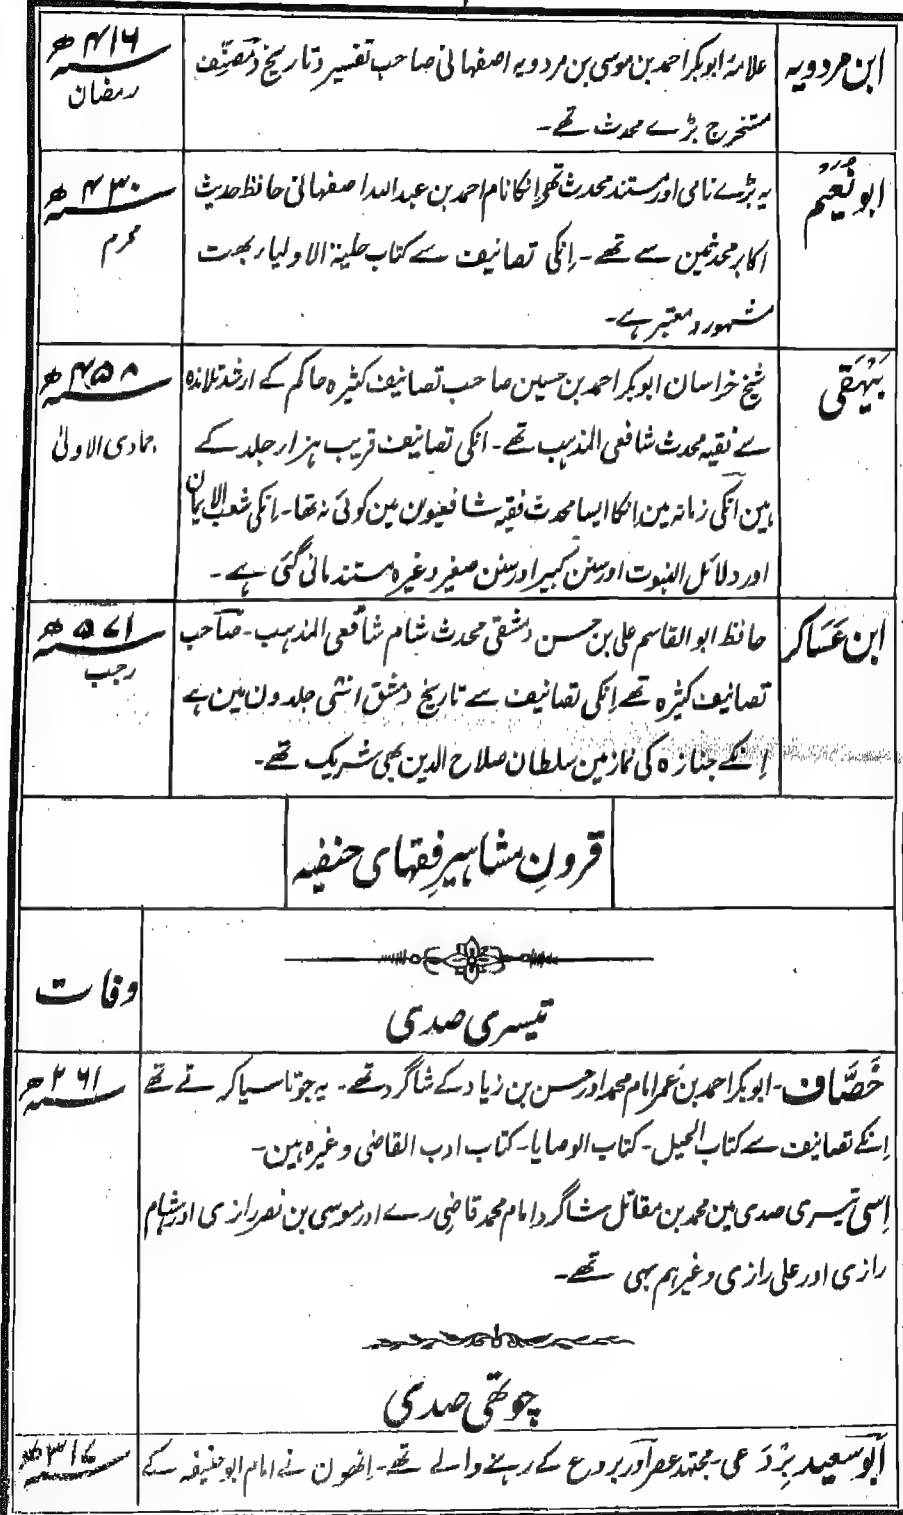 ابن مردویہ
علامہ ابوبکر احمد بن موسی بن مردویہ اصفہانی صاحب تفسیر و تاریخ و مصنف
مستخرج بڑے محدث تھے۔
۴۱۶ھ
رمضان
ابو نُعیم
یہ بڑے نامی اور مستند محدث تھے انکا نام احمد بن عبداللہ اصفہانی حافظ حدیث
اکابر محدثین سے تھے۔ اِنکی تصانیف سے کتاب حلیۃ الاولیاء بہت
مشہور و معتبر ہے۔
۴۳۰ھ
محرم
بَیْہَقی
شیخ خراسان ابوبکر احمد بن حسین صاحب تصانیف کثیرہ حاکم کے ارشد تلامذہ
سے فقیہ محدث شافعی المذہب تھے۔ انکی تصانیف قریب ہزار جلد کے
ہین انکی زمانہ مین انکا ایسا محدث فقیہ شافعیون مین کوئی نہ تھا۔ اِنکی شعب الایمان
اور دلائل النبوت اور سنن کبیر اور سنن صغیر وغیرہ مستند مانی گئی ہے۔
۴۵۸ھ
جمادی الاولیٰ
ابن عَسَاکر
حافظ ابو القاسم علی بن حسن دمشقی محدث شام شافعی المذہب۔ صاحب
تصانیف کثیرہ تھے اِنکی تصانیف سے تاریخ دمشق اسّی جلدون مین ہے
اِنکے جنازہ کی نماز مین سلطان صلاح الدین بھی شریک تھے۔
۵۷۱ھ
رجب
قرونِ مشاہیرِ فقہای حنفیہ
وفات
تیسری صدی
خَصَّاف۔ ابوبکر احمد بن عمر امام محمد اور حسن بن زیاد کے شاگرد تھے۔ یہ جوتا سیا کرتے تھے
اِنکے تصانیف سے کتاب الحیل۔ کتاب الوصایا۔ کتاب ادب القاضی وغیرہ ہین۔
اِسی تیسری صدی مین محمد بن مقاتل شاگرد امام محمد قاضی رے اور موسی بن نصر رازی اور ہشام
رازی اور علی رازی وغیرہم بہی تھے۔
۲۶۱ھ
چوتھی صدی
ابو سعید بِرْدَعی۔ مجتہد عصر اور بردع کے رہنے والے تھے۔ اِنھون نے امام ابو حنیفہ کے
۳۱۷ھ